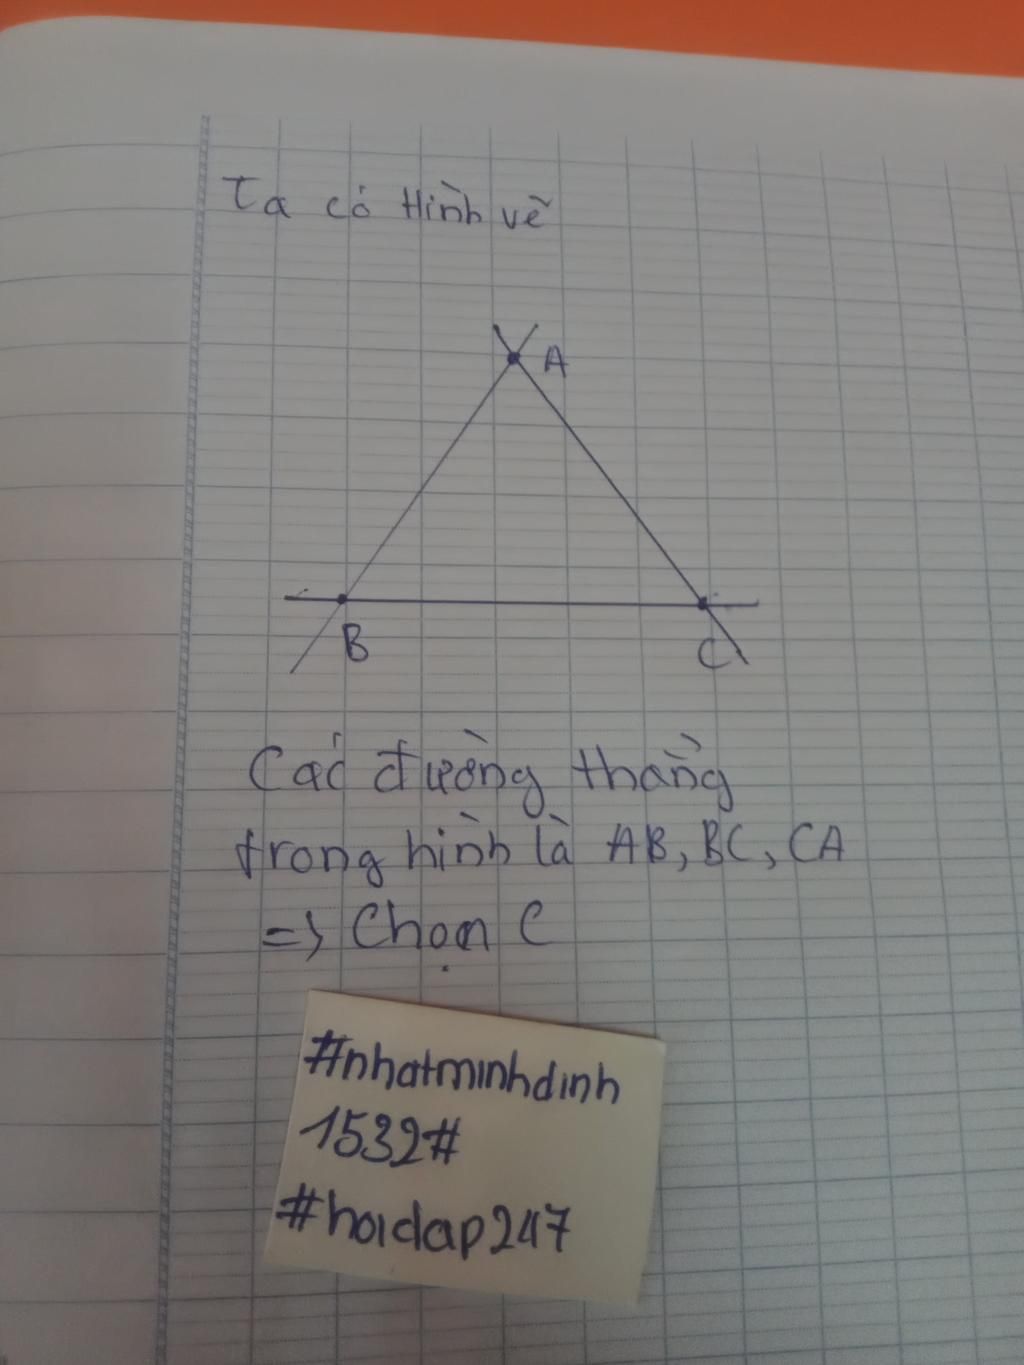 Ta có Hình vẽ
A
B
C
Các đường thẳng
trong hình là AB, BC, CA
=> Chọn C
#nhatminhdinh
1532#
#hoidap247